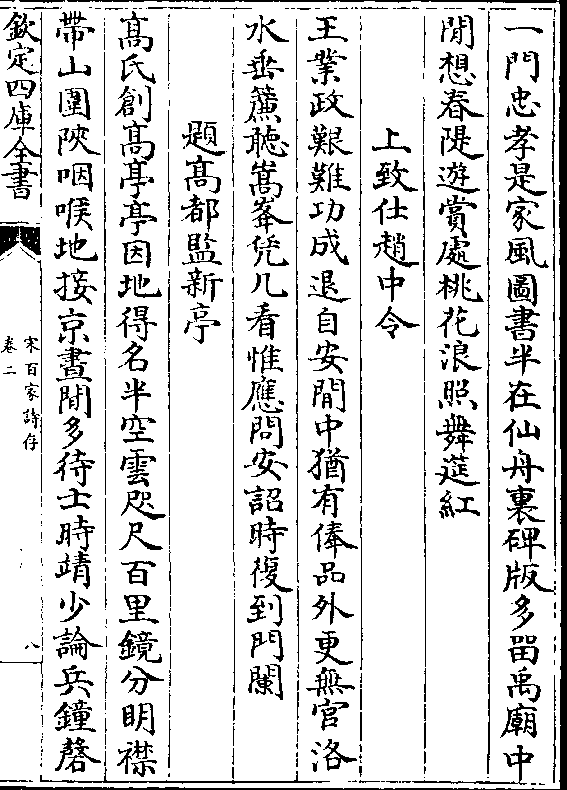 一門忠孝是家風圖書半在仙舟裏碑版多留禹廟中
閒想春隄遊賞處桃花浪照舞筵紅
上致仕趙中令
王業政艱難功成退自安閒中猶有俸品外更無官洛
水垂簾聽嵩峯凭几看惟應問安詔時復到門闌
題高都監新亭
高氏創高亭亭因地得名半空雲咫尺百里鏡分明襟
帶山圍陜咽喉地接京晝閒多待士時靖少論兵鐘磬
欽定四庫全書
宋百家詩存
卷二
八